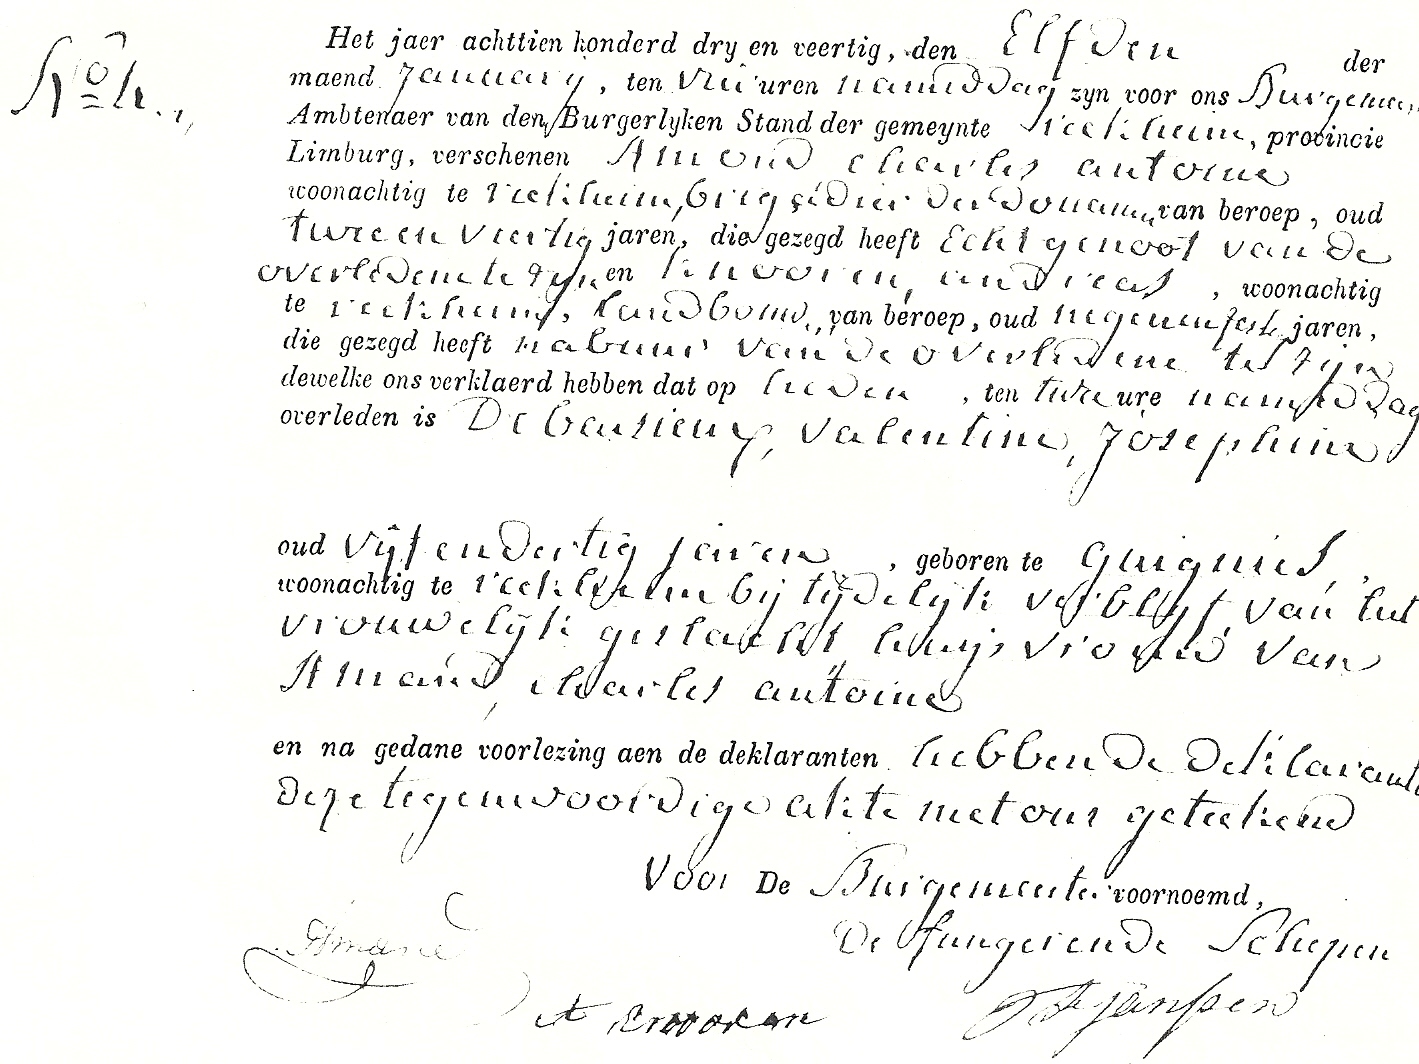 No 4.
Het jaer achttien honderd dry en veertig, den Elfden der
maend January, ten vier uren namiddag zyn voor ons Burgemee
Ambtenaer van den Burgerlyken Stand der gemeynte reekheim, provincie
Limburg, verschenen Amand charles antoine
woonachtig te reekheim, brigadier der Douanen van beroep, oud
twee en veertig jaren, die gezegd heeft Echtgenoot van de
overledene te zyn en Knooren, andreas, woonachtig
te reekheim, Landbouw, van beroep, oud negenenfest jaren,
die gezegd heeft nabuur van de overledene te zijn
dewelke ons verklaerd hebben dat op heden, ten twee ure namiddag
overleden is Debausieux, valentine, Josephine
oud vijf en dertig jaren, geboren te Guignies,
woonachtig te reekheim bij tijdelijk verblyf, van het
vrouwelijk geslacht, huijsvrouw van
Amand, charles antoine
en na gedane voorlezing aen de deklaranten hebben de deklarant
deze tegenwoordige akte met ons geteekend
Voor De Burgemeester voornoemd,
De fungerende Schepen
Amand
A Knooren
Janssen